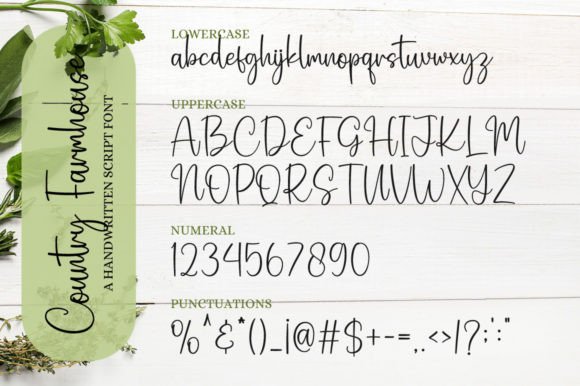 Country Farmhouse
A HANDWRITTEN SCRIPT FONT
LOWERCASE
abcdefghijklmnopqrstuvwxyz
UPPERCASE
ABCDEFGHIJKLM
NOPQRSTUVWXYZ
NUMERAL
1234567890
PUNCTUATIONS
%^&*()_¡@#$+-=,.<>|?;':"